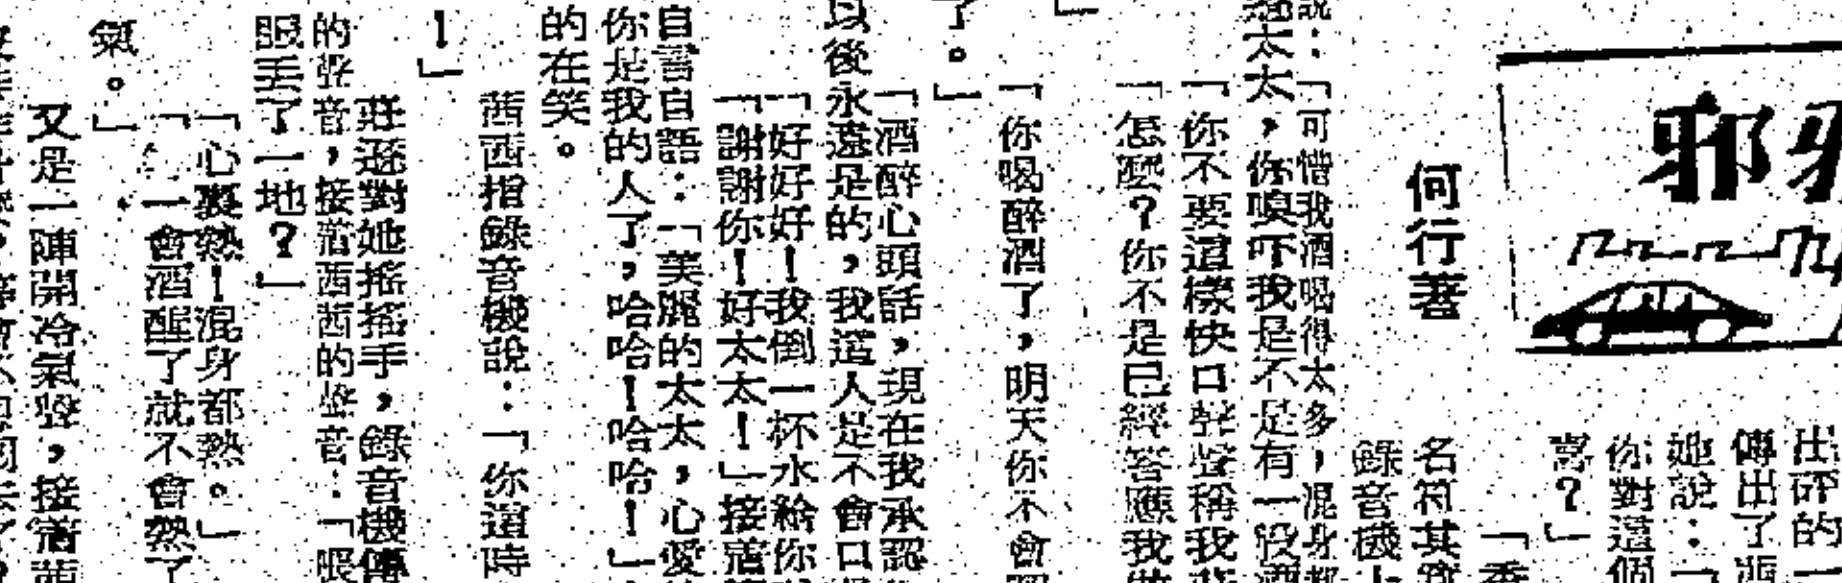 邪
何行善
出砰的一
傳出了
她說：「
你對這個
嗎？」
「香
名符其實
錄音機上
說：「可惜我酒喝得太多，混身都
太太，你嗅吓我是不是有一股酒
「你不要這樣快口聲聲稱我
「怎麼？你不是已經答應我
」
「你喝醉酒了，明天你不會
了。」
「酒醉心頭話，現在我承認
以後永遠是的，我這人是不會口
「好好好！我倒一杯水給你
「謝謝你！好太太！」接着
自言自語：「美麗的太太，心愛
你是我的人了，哈哈！哈哈！」
的在笑。
茜西指錄音機說：「你這時
！」
莊遜對她搖搖手，錄音機傳
的聲音，接着茜西的聲音：「喂
服丟了一地？」
「心裏熱！混身都熱。」
「一會酒醒了就不會熱了
氣。」
又是一陣開冷氣聲，接着茜